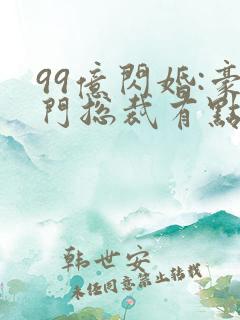 99億閃婚:豪
門總裁有點
韩世安
未经同意禁止转载